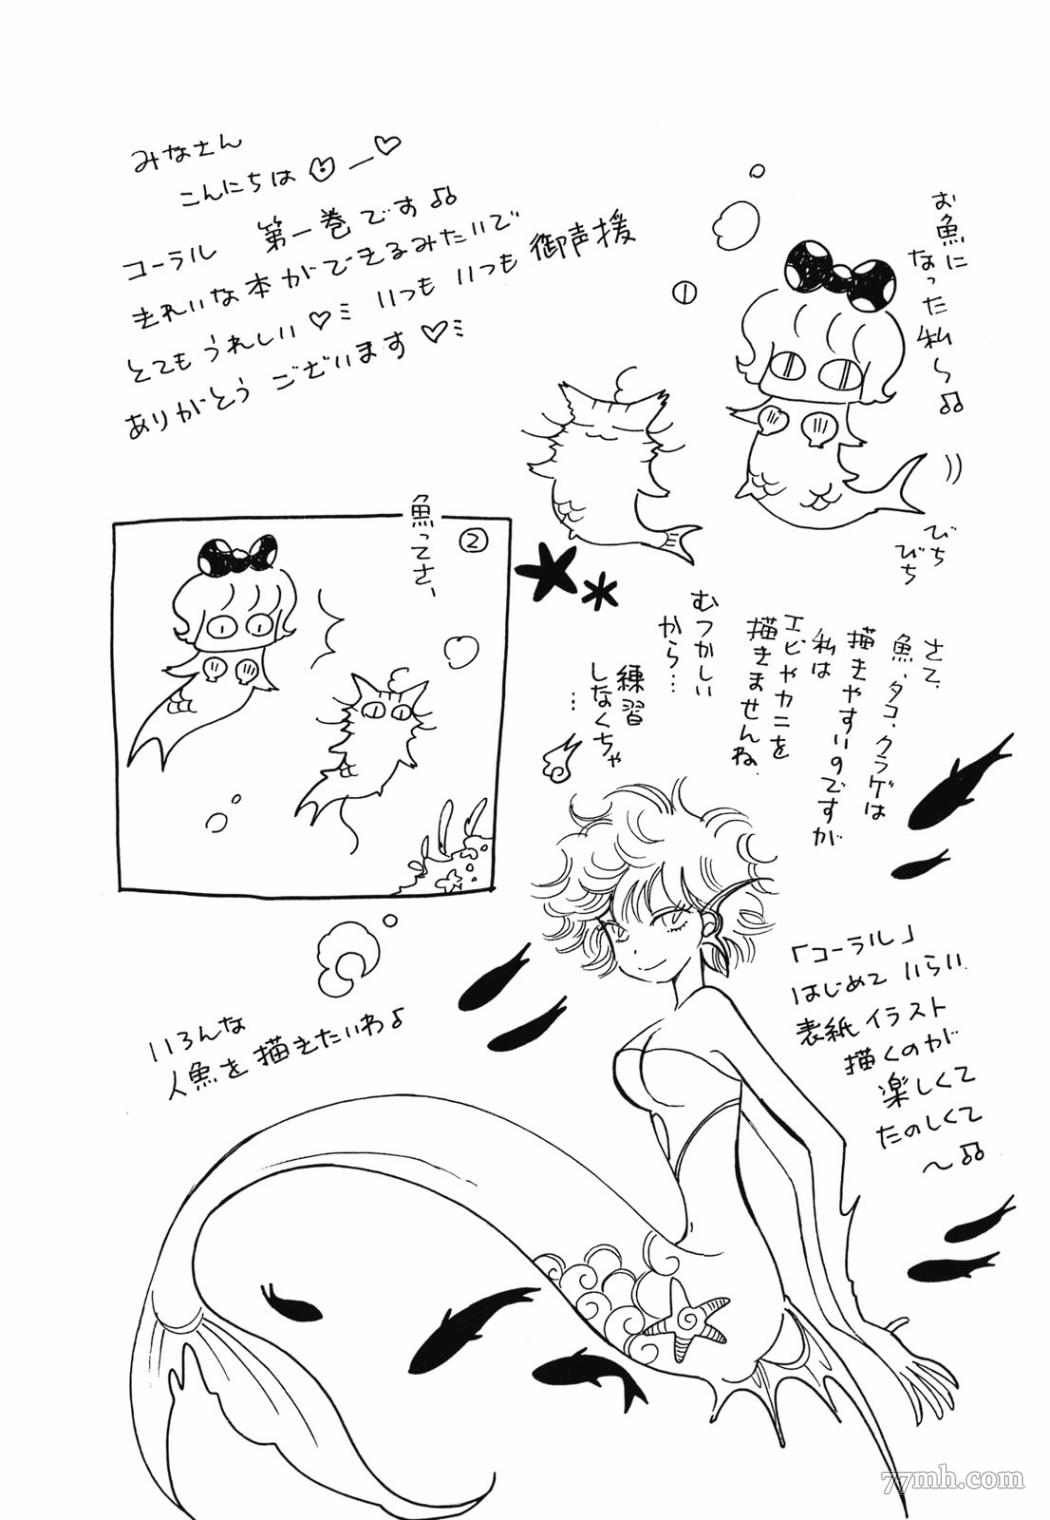 みなさん
こんにちは
コーラル 第一巻です♫
きれいな本ができるみたいで
とてもうれしい♡ミ いつもいつも御声援
ありがとうございます♡ミ
お魚に
なった私ら♫
①
びち
びち
魚ってさ、
②
さて、
魚、タコ、クラゲは
描きやすいのですが
私は
エビやカニを
描きませんね.
むつかしい
から…
練習
しなくちゃ
…
「コーラル」
はじめていらい
表紙イラスト
描くのが
楽しくて
たのしくて
〜♫
いろんな
人魚を描きたいわ♪
77mh.com